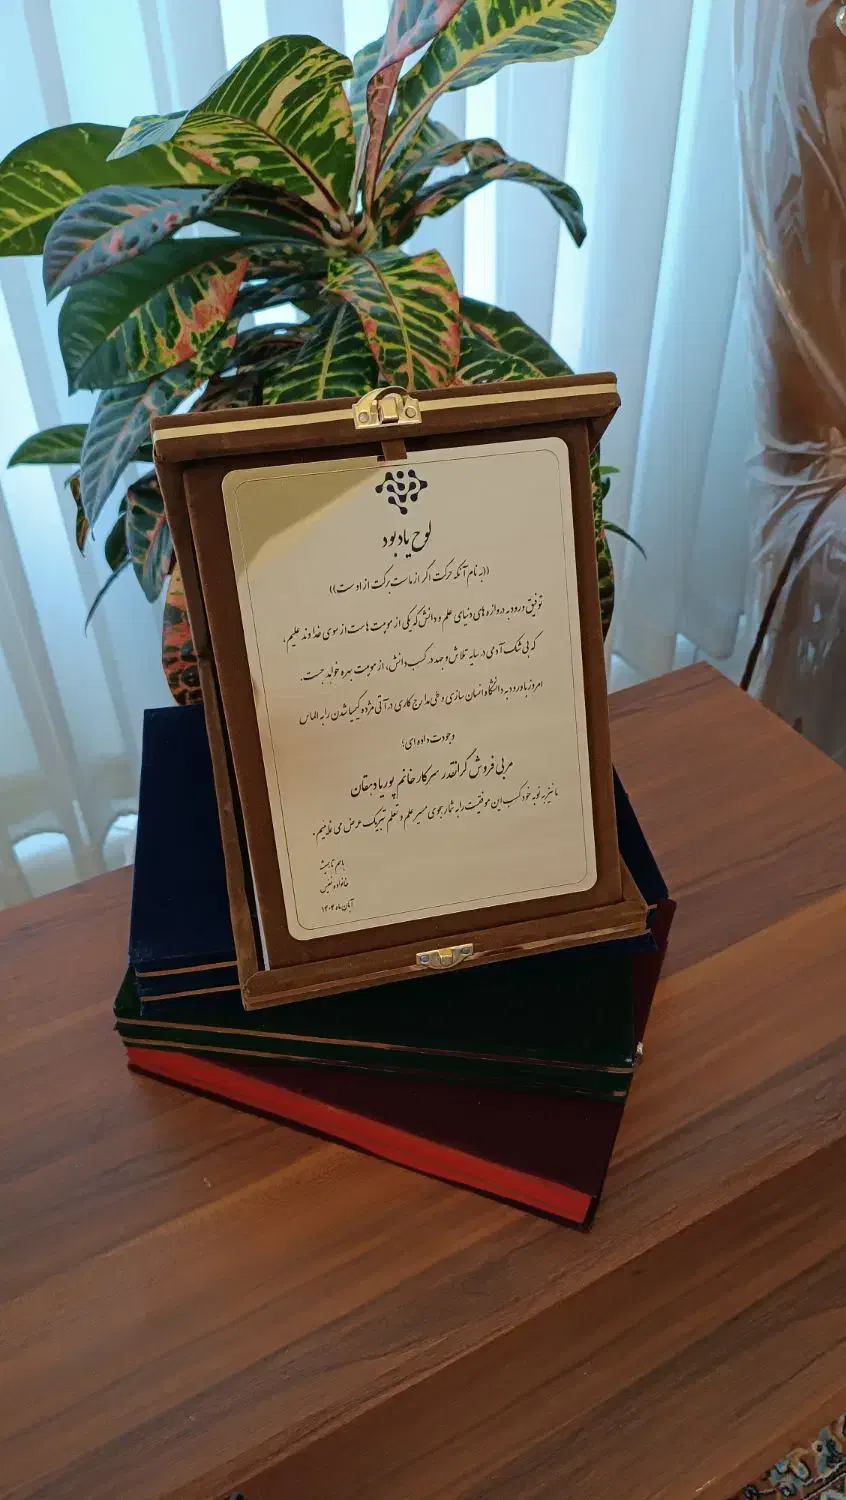 لوح یادبود
((به نام آنکه حرکت اگر از ماست برکت از اوست))
توفیق ورود به دروازه های دنیای علم و دانش که یکی از موهبت هاست از سوی خداوند علیم،
که بی شک آدمی در سایه تلاش و جد در کسب دانش، از موهبت بهره خواهد جست.
امروز باورود به دانشگاه انسان سازی و طی مدارج کاری در آتی مژده کیمیا شدن را به الماس
وجودت داده ای؛
مربی فروش گرانقدر سرکار خانم پوریا دهقان
ما نیز به نوبه خود کسب این موفقیت را به شمار جوی مسیر علم و تعلم تبریک عرض می نمائیم.
باهم تا بهشت
خانواده نفیس
آبان ماه ۱۴۰۴